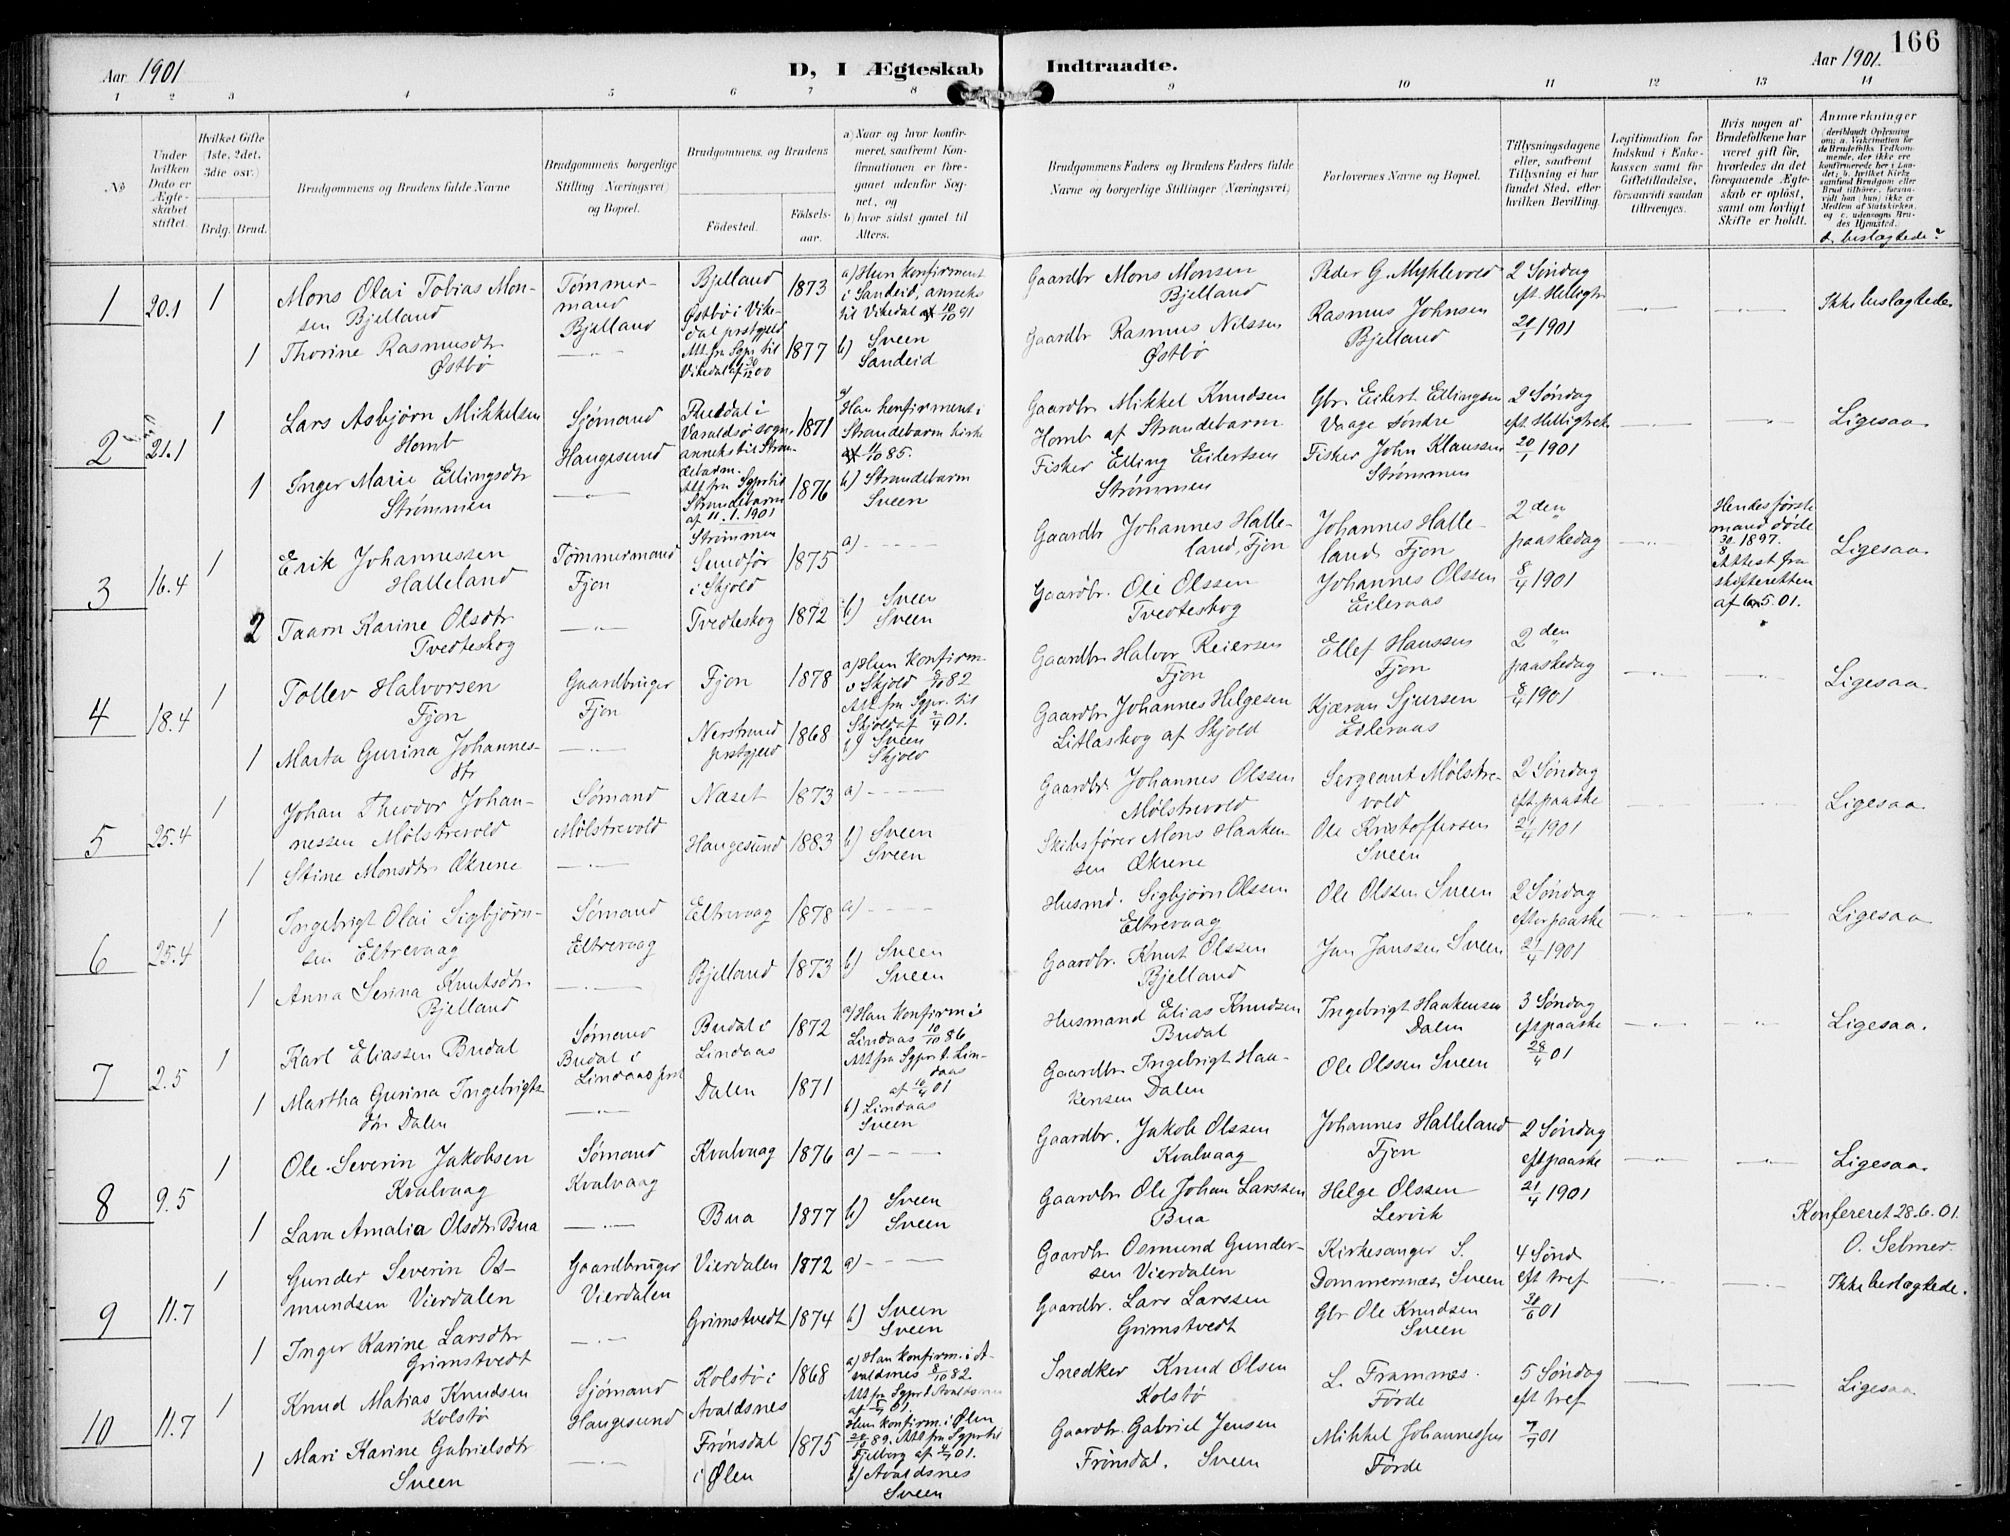 166
Aar 1901
D, I Ægteskab Indtraadte.
Aar 1901.
1 2 3 4 5 6 7 8 9 10 11 12 13 14
No
Under hvilken Dato er Ægteskabet stiftet.
Hvilket Gifte (1ste, 2det, 3die osv.)
Brdg. Brud.
Brudgommens og Brudens fulde Navne
Brudgommens borgerlige Stilling (Næringsvei) og Bopæl.
Brudgommens, og Brudens
Fødested.
Fødselsaar.
a) Naar og hvor konfirmeret, saafremt Konfirmationen er foregaaet udenfor Sognet, og
b) hvor sidst gaaet til Alters.
Brudgommens Faders og Brudens Faders fulde Navne og borgerlige Stillinger (Næringsvei)
Forlovernes Navne og Bopæl.
Tillysningsdagene eller, saafremt Tillysning ei har fundet Sted, efter hvilken Bevilling.
Legitimation for Indskud i Enkekassen samt for Giftetilladelse, forsaavidt saadan tiltrænges.
Hvis nogen af Brudefolkene har været gift før, hvorledes da det foregaaende Ægteskab er opløst, samt om lovligt Skifte er holdt.
Anmærkninger
(deriblandt Oplysning om: a. Vakcination for de Brudefolks Vedkommende, der ikke ere konfirmerede her i Landet; b. hvilket Kirkesamfund Brudgom eller Brud tilhører, forsaavidt han (hun) ikke er Medlem af Statskirken, og c. udensogns Brudes Hjemsted.
d. beslægtede?
1 20.1 1 Mons Olai Tobias Monsen Bjelland
Tømmermand Bjelland
Bjelland 1873
a) Hun konfirmeret i Sandeid, anneks til Vikedal 10/10 91
Gaardbr Mons Monsen Bjelland
Peder G. Myklevold
2 Søndag eft. Helligtr. 20/1 1901
Ikke beslægtede
1 Thorine Rasmusdtr Østbø
Østbø i Vikedal prstgjeld
Att fra Sgpr til Vikedal af 30/12 00
1877
b) Sveen
Sandeid
Gaardbr Rasmus Nilssen Østbø
Rasmus Johnsen Bjelland
2 21.1 1 Lars Asbjørn Mikkelsen Homb
Sjømand Haugesund
Varaldsø sogn, anneks til Strandebarm.
Att fra Sgpr til Strandebarm af 11.1.1901
1871
a) Han konfirmeret i Strandebarm kirke
85.
Gaardbr Mikkel Knudsen Homb af Strandebarm
Gbr Eilert Ellingsen Vaage Søndre
2 Søndag eft. Helligtrek 20/1 1901
Ligesaa
1 Inger Marie Ellingsdtr Strømmen
Strømmen
1876
b) Strandebarm
Sveen
Fisker Elling Eilertsen Strømmen
Fisker John Klaussen Strømmen
3 16.4 1 Erik Johannessen Halleland
Tømmermand Fjon
Sundfør i Skjold
1875
a)
Gaardbr Johannes Halleland, Fjon
Johannes Halleland, Fjon
2den paaskedag 8/4 1901
Hendes første mand døde 30/8 1897. Attest fra skifteretten af 6.5.01.
Ligesaa.
2 Taarn Karine Olsdtr Tvedteskog
Tvedteskog
1872
b) Sveen
Sveen
Gaardbr. Ole Olssen Tvedteskog
Johannes Olssen Eileraas
4 18.4 1 Tollev Halvorsen Fjon
Gaardbruger Fjon
Fjon
1878
a) Hun konfirm. i Skjold 82
Att fra Sgpr. til Skjold af 2/4 01.
Gaardbr Halvor Reiersen Fjon
Ellef Hanssen Fjon
2den paaskedag 8/4 1901
Ligesaa.
1 Marta Gurina Johannesdtr
Nerstrand prstgjeld
1868
b) Sveen
Skjold
Gaardbr. Johannes Helgesen Litlaskog af Skjold
Kjæran Sjursen Eileraas
5 25.4 1 Johan Theodor Johannessen Mølstrevold
Sømand Mølstrevold
Næset
1873
a)
Gaardbr. Johannes Olssen Mølstrevold
Sergeant Mølstrevold
2 Søndag eft. paaske 21/4 1901
Ligesaa.
1 Stine Monsdtr Økrene
Haugesund
1883
b) Sveen
Sveen
Skibsfører Mons Haakensen Økrene
Ole Kristoffersen Sveen
6 25.4 1 Ingebrigt Olai Sigbjørnsen Eltrevaag
Sømand Eltrevaag
Eltrevaag
1878
a)
Husmd. Sigbjørn Olssen Eltrevaag
Ole Olssen Sveen
2 Søndag efter paaske 21/4 1901
Ligesaa.
1 Anna Serina Knutsdtr Bjelland
Bjelland
1873
b) Sveen
Sveen
Gaardbr. Knut Olssen Bjelland
Jan Janssen Sveen
7 2.5 1 Karl Eliassen Budal
Sømand Budal i Lindaas prst
Budal i Lindaas
1872
a) Han konfirm. i Lindaas 10/10 86
Att fra Sgpr t. Lindaas af 16/4 01
Husmand Elias Knudsen Budal
Ingebrigt Haakensen Dalen
3 Søndag eft paaske 28/4 01
Ligesaa.
1 Martha Gurina Ingebrigtsdtr Dalen
Dalen
1871
b) Lindaas
Sveen
Gaardbr Ingebrigt Haakensen Dalen
Ole Olssen Sveen
8 9.5 1 Ole Severin Jakobsen Kvalvaag
Sømand Kvalvaag
Kvalvaag
1876
a)
Gaardbr. Jakob Olssen Kvalvaag
Johannes Halleland Fjon
2 Søndag eft paaske 21/4 1901
Ligesaa.
1 Lava Amalia Olsdtr Bua
Bua
1877
b) Sveen
Sveen
Gaardbr Ole Johan Larssen Bua
Helge Olssen Lervik
Konfereret 28.6.01.
O. Selmer.
9 11.7 1 Gunder Severin Osmundsen Vierdalen
Gaardbruger Vierdalen
Vierdalen
1872
a)
Gaardbr Osmund Gundersen Vierdalen
Kirkesanger S. Dommersnæs, Sveen
4 Sønd eft tref 30/6 01
Ikke beslægtede.
1 Inger Karine Larsdtr Grimstvedt
Grimstvedt
1874
b) Sveen
Sveen
Gaardbr. Lars Larssen Grimstvedt
Gbr Ole Knudsen Sveen
10 11.7 1 Knud Matias Knudsen Kolstø
Sjømand Haugesund
Kolstø i Avaldsnes
1868
a) Han konfirm. i Avaldsnes 8/10 82
Att fra Sgpr t Avaldsnes
Snedker Knud Olsen Kolstø
L. Framnæs. Førde
5 Søndag eft tref 7/7 01
Ligesaa
1 Mari Karine Gabrielsdtr Sveen
Frønsdal i Ølen
1875
Hun konfirm. i Ølen 89. Att fra Sgpr til Fjelberg af 4/7 01.
b) Avaldsnes
Sveen
Gaardbr. Gabriel Jensen Frønsdal. Sveen
Mikkel Johannessen Førde